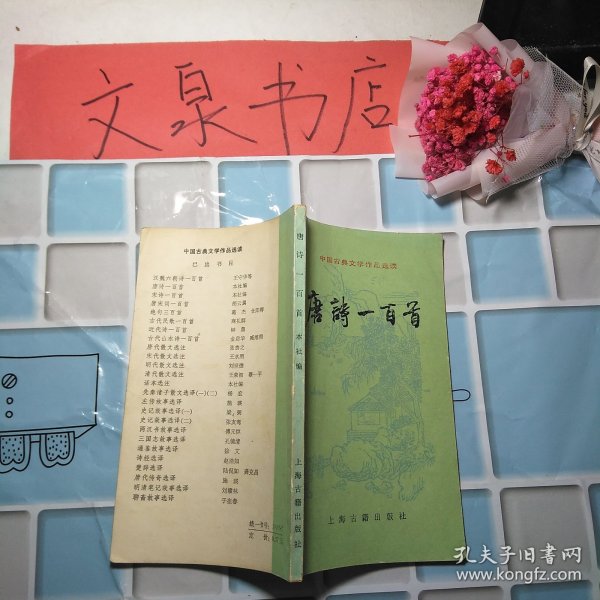 文泉书店
中国古典文学作品选读
已出书目
汉魏六朝诗一百首 王守华等
唐诗一百首 本社编
宋诗一百首 本社编
唐宋词一百首 胡云翼
绝句三百首
古代民歌一百首 商礼群
近代诗一百首
古代山水诗一百首 金启华 臧维熙
唐代散文选注 张㧑之
宋代散文选注 王水照
明代散文选注 刘世德
清代散文选注 王荣初 蔡一平
话本选注 本社编
先秦诸子散文选译(一)(二) 杨宏
左传故事选译
史记故事选译(一)
史记故事选译(二) 张友鸾
两汉书故事选译 傅元恺
三国志故事选译 孔镜清
通鉴故事选译 徐文
诗经选译 赵浩如
楚辞选译 陆侃如 龚克昌
唐代传奇选译 施瑛
明清笔记故事选译 刘耀林
聊斋故事选译 于在春
统一书号:
定价:
唐诗一百首 本社编 上海古籍出版社
中国古典文学作品选读
唐詩一百首
上海古籍出版社
孔夫子旧书网
www.kongfz.com